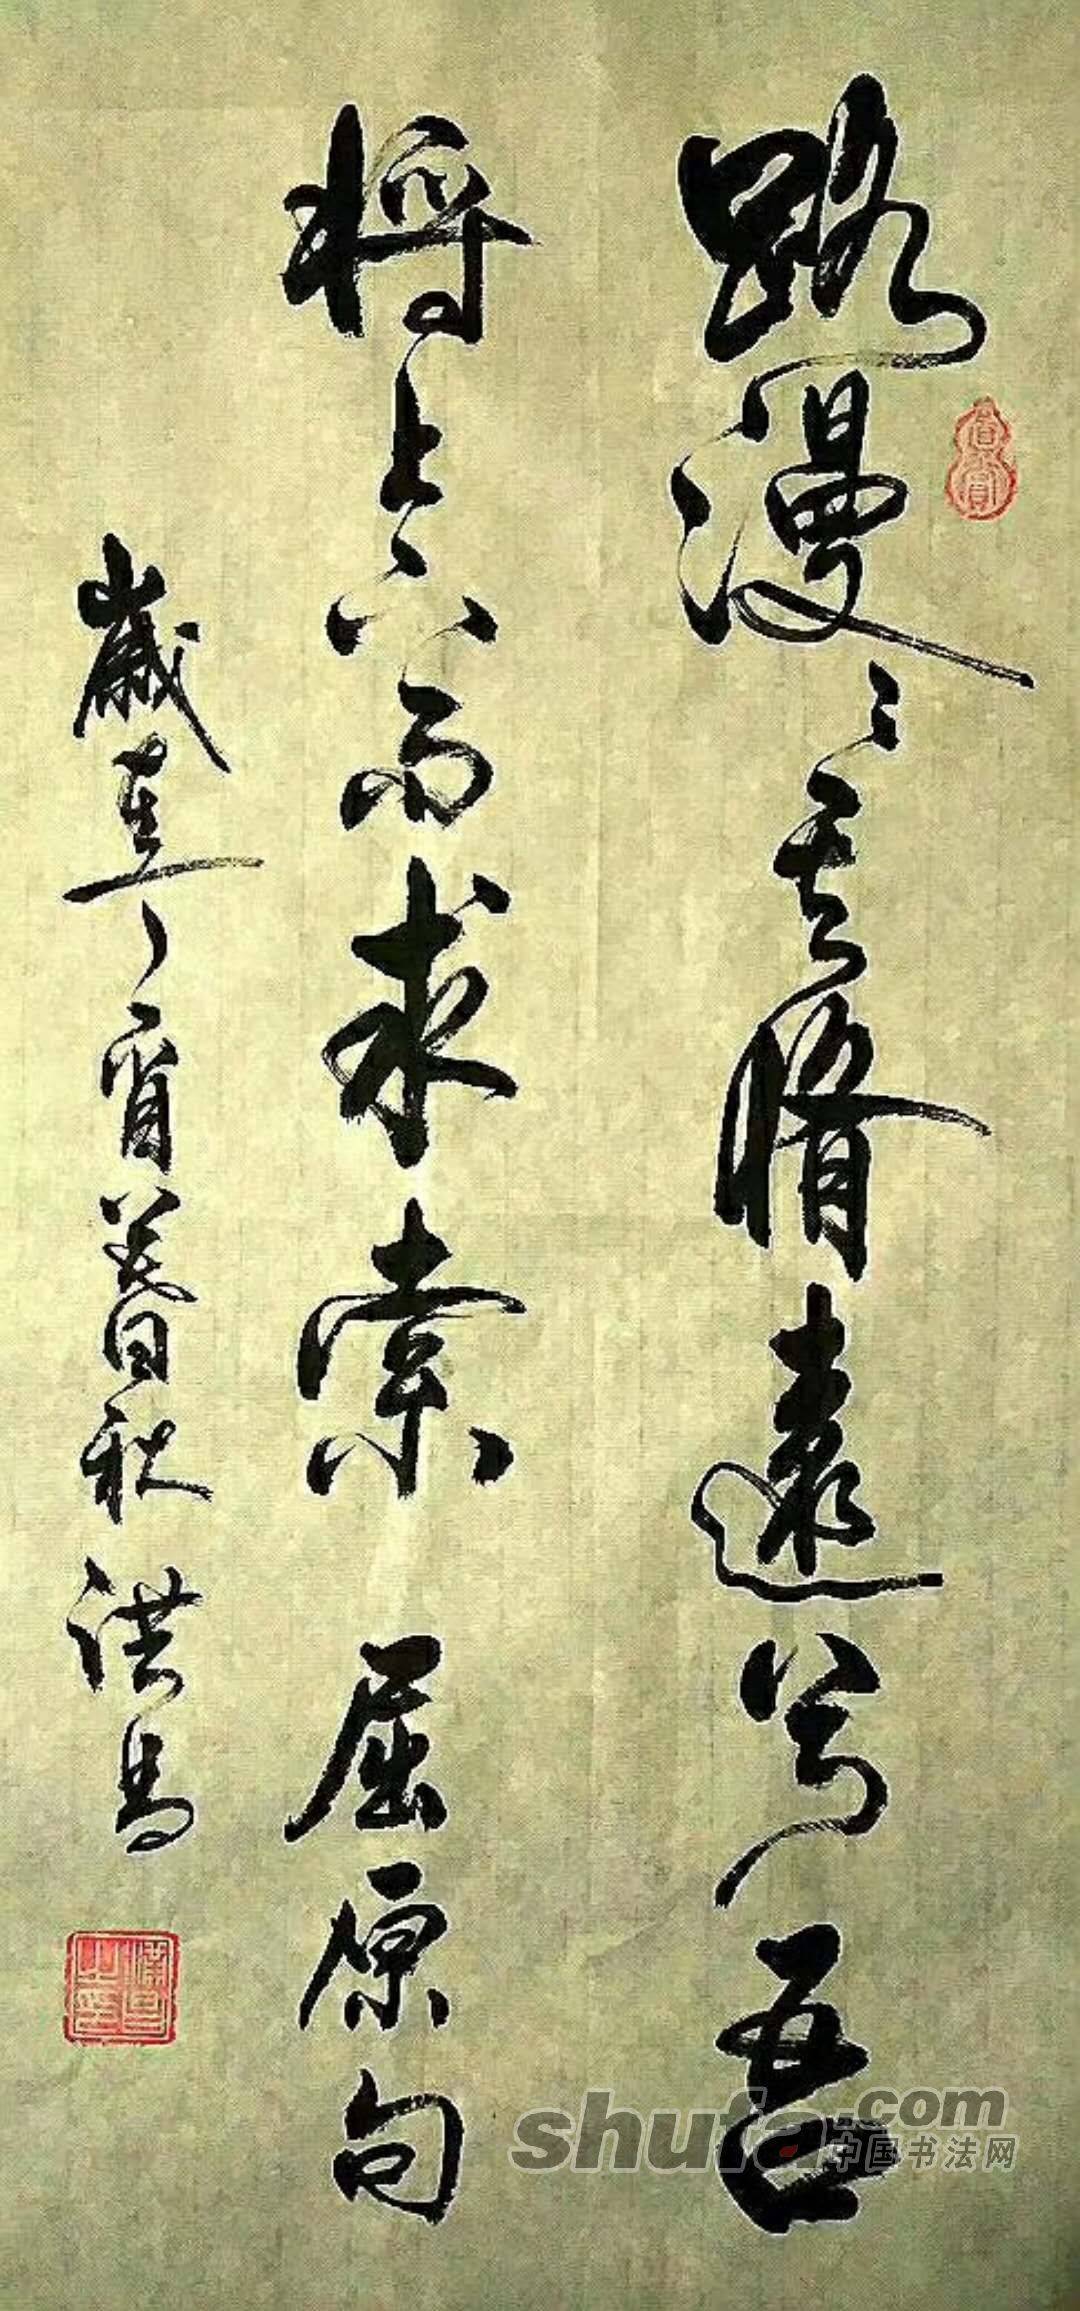 路漫々其脩遠兮吾
將上下而求索 屈原句
歲在丁酉暮秋 洪
shufa.com
中国书法网